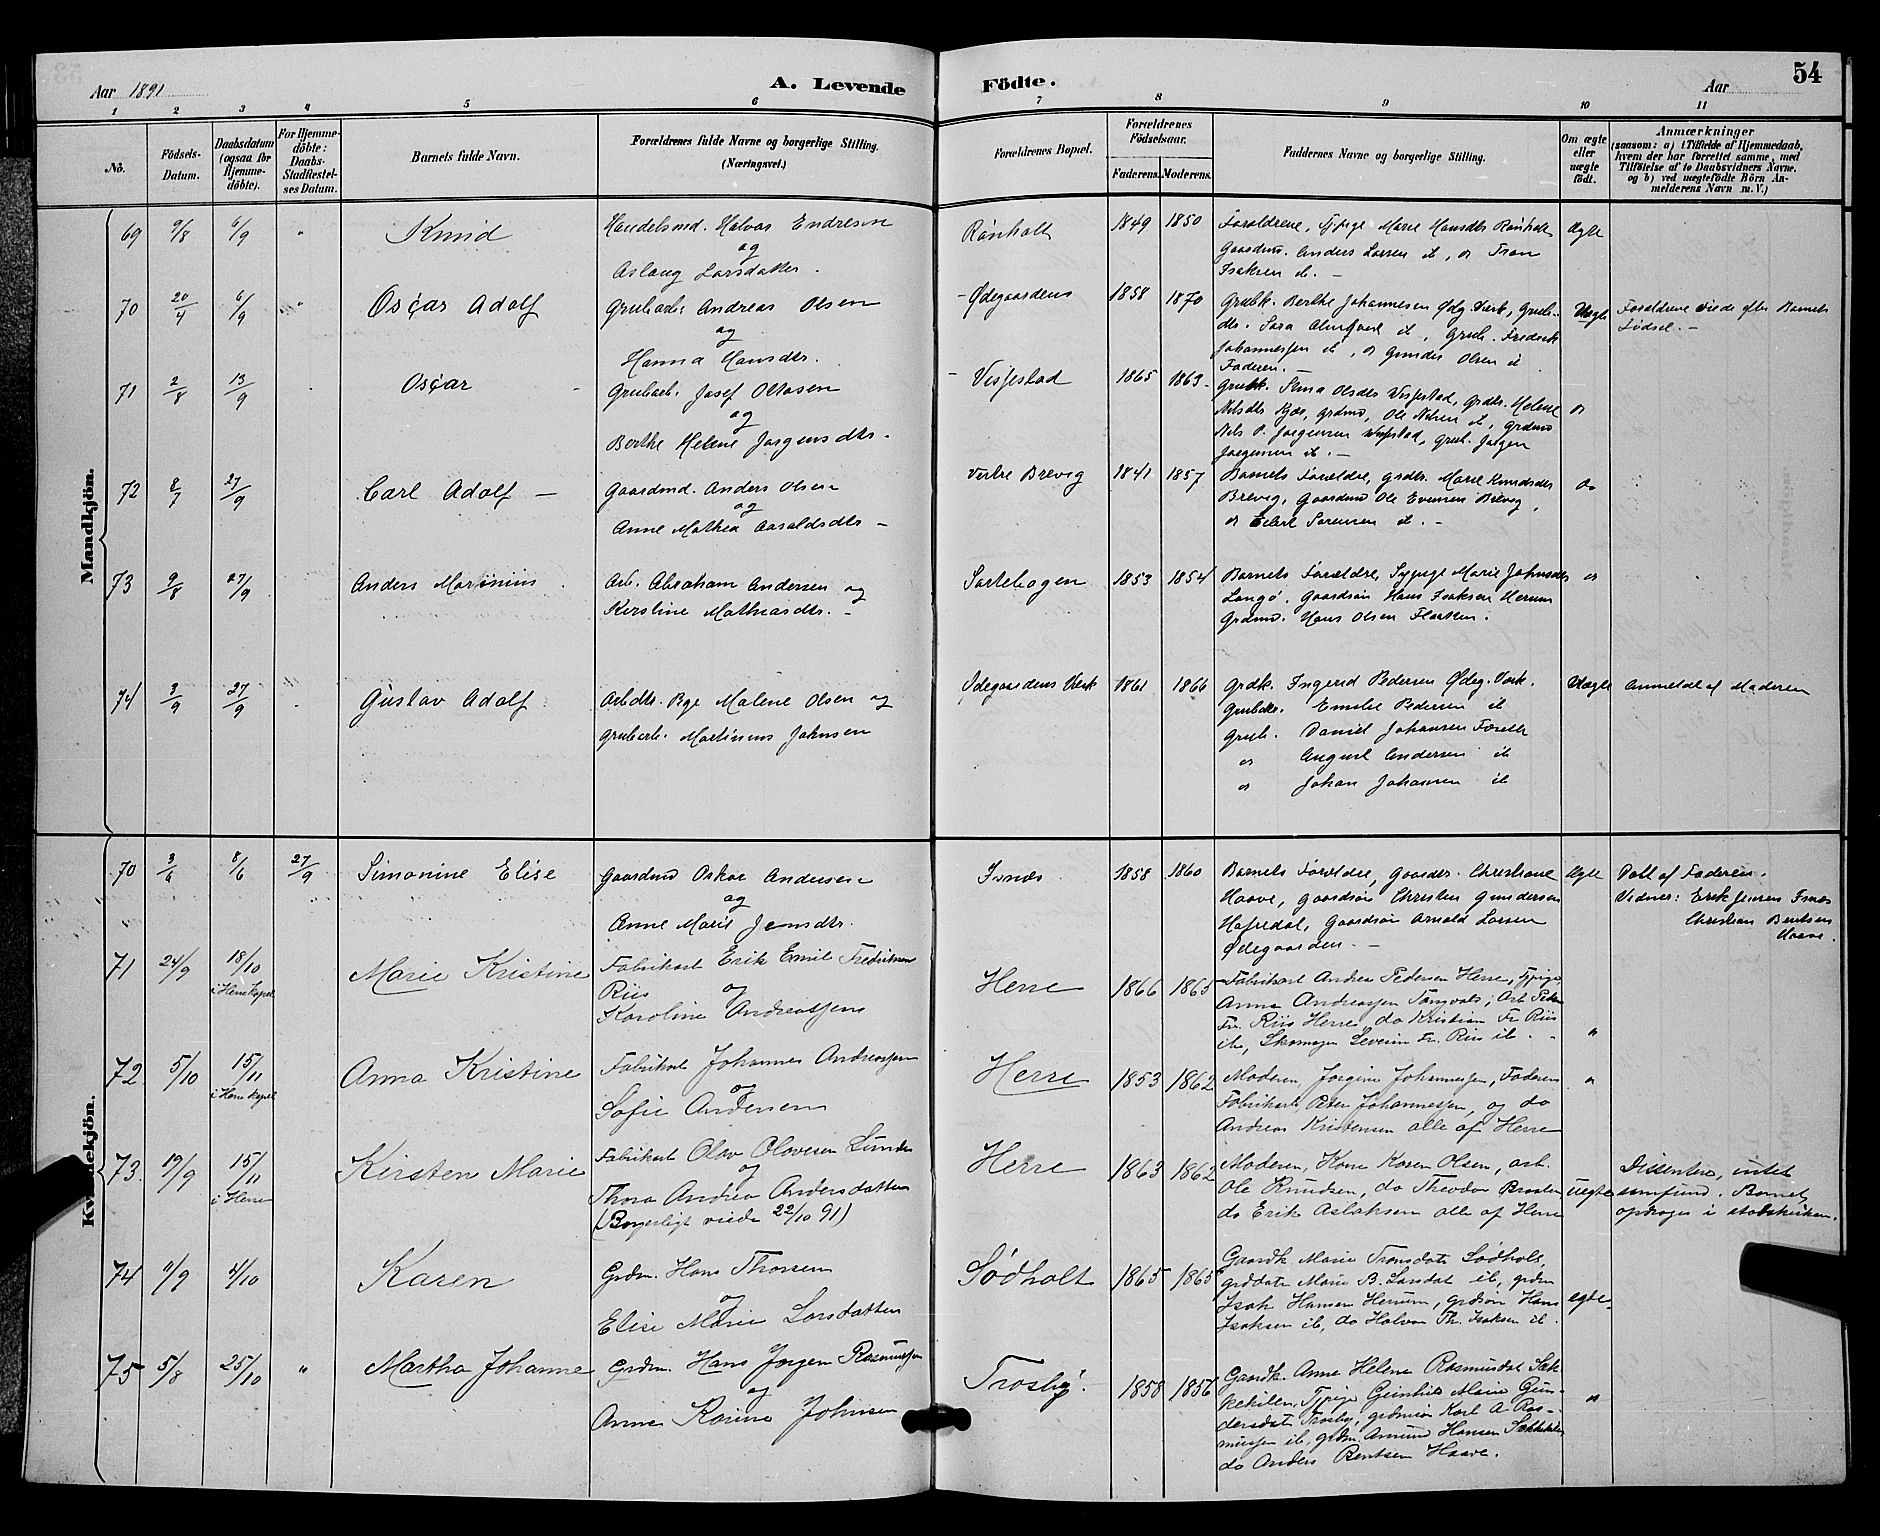 54
Aar 1891
A. Levende
Födte.
Aar
1 2 3 4 5 6 7 8 9 10 11
No.
Födsels-
Datum.
Daabsdatum
(ogsaa for
Hjemme-
döbte).
For Hjemme-
döbte:
Daabs-
Stadfæstel-
ses Datum.
Barnets fulde Navn.
Forældrenes fulde Navne og borgerlige Stilling.
(Næringsvei.)
Forældrenes Bopæl.
Forældrenes
Födselsaar.
Faderens. Moderens.
Faddernes Navne og borgerlige Stilling.
Om ægte
eller
uægte
födt.
Anmærkninger
(saasom: a) i Tilfælde af Hjemmedaab,
hvem der har forrettet samme, med
Tilföielse af to Daabsvidners Navne,
og b) ved uægtefödte Börn An-
melderens Navn m. V.)
Mandkjön.
69 9/8 6/9 " Knud
Handelsmd. Halvor Endresen
og
Aslaug Larsdatter.
Rønholt 1849 1850
Forældrene, Tjpige Marie Hansdtr Rønholt
Gaardm. Anders Larsen ib, og Tron
Isaksen ib. -
Ægte
70 20/4 6/9 " Oscar Adolf
Grubarb. Andreas Olsen
og
Hanna Hansdtr.
Ødegaardens 1858 1870
Grubk. Berthe Johannesen Ødg. Verk, Grub-
dtr. Sara ib, Grub. Fredrik
Johannesen ib, og Gunder Olsen ib
Faderen.
Uægte
Forældrene viede efter Barnets
Fødsel. -
71 2/8 13/9 Oscar
Grubarb. Josef Ottosen
og
Berthe Helene Jørgensdtr.
Vissestad 1865 1863
Grubk. Olsdtr Vissestad, grdtr. Helene
Nilsdtr, grdmd, Ole Nilsen ib, Grdmd
Nils P. Jørgensen Vissestad, grub. Jørgen
Jørgensen ib. -
do
72 8/7 27/9 Carl Adolf -
Gaardmd. Anders Olsen
og
Anne Mathea Aaraldsdtr -
Vestre Brevig 1841 1857
Barnets Forældre, grdtr. Marie Knudsdtr
Brevig, Gaardmd Ole Evensen Brevig,
og Eilert Sørensen ib. -
do
73 9/8 27/9 Anders Martinius
Arb. Abraham Andersen og
Kirstine Mathiasdtr. -
Sortebogen 1853 1854
Barnets Forældre, Typige Marie Johnsdtr
Langø, Gaardsøn Hans Isaksen Herum
Grdmd. Hans Olsen Flaaten.
do
74 3/9 27/9 Gustav Adolf
Arbdtr. Pge Malene Olsen og
grubarb. Martinius Johnsen
Ødegaardens Verk 1861 1866
Grdk. Ingerid Pedersen Ødeg. Verk.
Grubdtr. Emilie Pedersen ib
Grub. Daniel Johansen
do August Andersen ib
do Johan Johansen ib
Uægte
Anmeldt af Moderen
Kvindekjön.
70 3/6 8/6 27/9 Simonine Elise
Gaardmd Oskar Andersen
og
Anne Marie Jensdtr.
Isnæs 1858 1860
Barnets Forældre, Gaardtr. Christiane
Haave, gaardsøn Christen Gundersen
Hafredal, Gaardsøn Arnold Larsen
Ødegaarden. -
Ægte
Døbt af Faderen.
Vidner: Erik Jensen Isnæs
Christian Bentsen
Haave.
71 24/9 18/10 Marie Kristine
i Herre Kapel
Fabrikarb Erik Emil Fredriksen
Riis
og
Karoline Andreassen
Herre 1866 1865
Fabrikarb Andreas Pedersen Herre, Tjpige
Anna Andreassen Tangvald, Arb Peder
Fr. Riis Herre, do Kristian Fr Riis
ib, Skomager Severin Fr. Riis ib.
"
72 5/10 15/11 Anna Kristine
i Herre Kapel
Fabrikarb Johannes Andreassen
og
Sofie Andersen
Herre 1853 1862
Moderen, Jørgine Johannessen, Faderen
Fabrikarb. Peter Johannessen, og do
Andreas Kristensen alle af Herre
"
73 19/9 15/11 Kirsten Marie
i Herre
Fabrikarb Olav Olavesen Lunde
og
Thora Andrea Andersdatter
(Borgerligt viede 22/10 91)
Herre 1863 1862
Moderen, Kone Karen Olsen, arb.
Ole Knudsen, do Theodor Braaten
do Erik Aslaksen alle af Herre
Uegte
Dissentere, intet
samfund. Barnet
opdrages i statskirken.
74 4/10 Karen
Grdm. Hans Thorsen
og
Elise Marie Larsdatter
Sødholt 1865 1865
Gaardk Marie Tronsdatr Sødholt,
grddatr Marie B. Larsdat ib, grdm
Isak Hansen Herum, grdsøn Hans
Isaksen ib, do Halvor Th. Isaksen ib.
egte.
75 5/8 25/10 " Martha Johanne
Grdm. Hans Jørgen Rasmussen
og
Anne Karine Johnsen
Trosby. 1858 1856
Gaardk. Anne Helene Rasmusdat Sæk-
kekilen, Tjpige Gunhild Marie Gun-
dersdatr Trosby, grdmsøn Karl A Ras-
mussen ib, grdm. Amund Hansen Sækkekilen
do Anders Bentsen Haave.
"